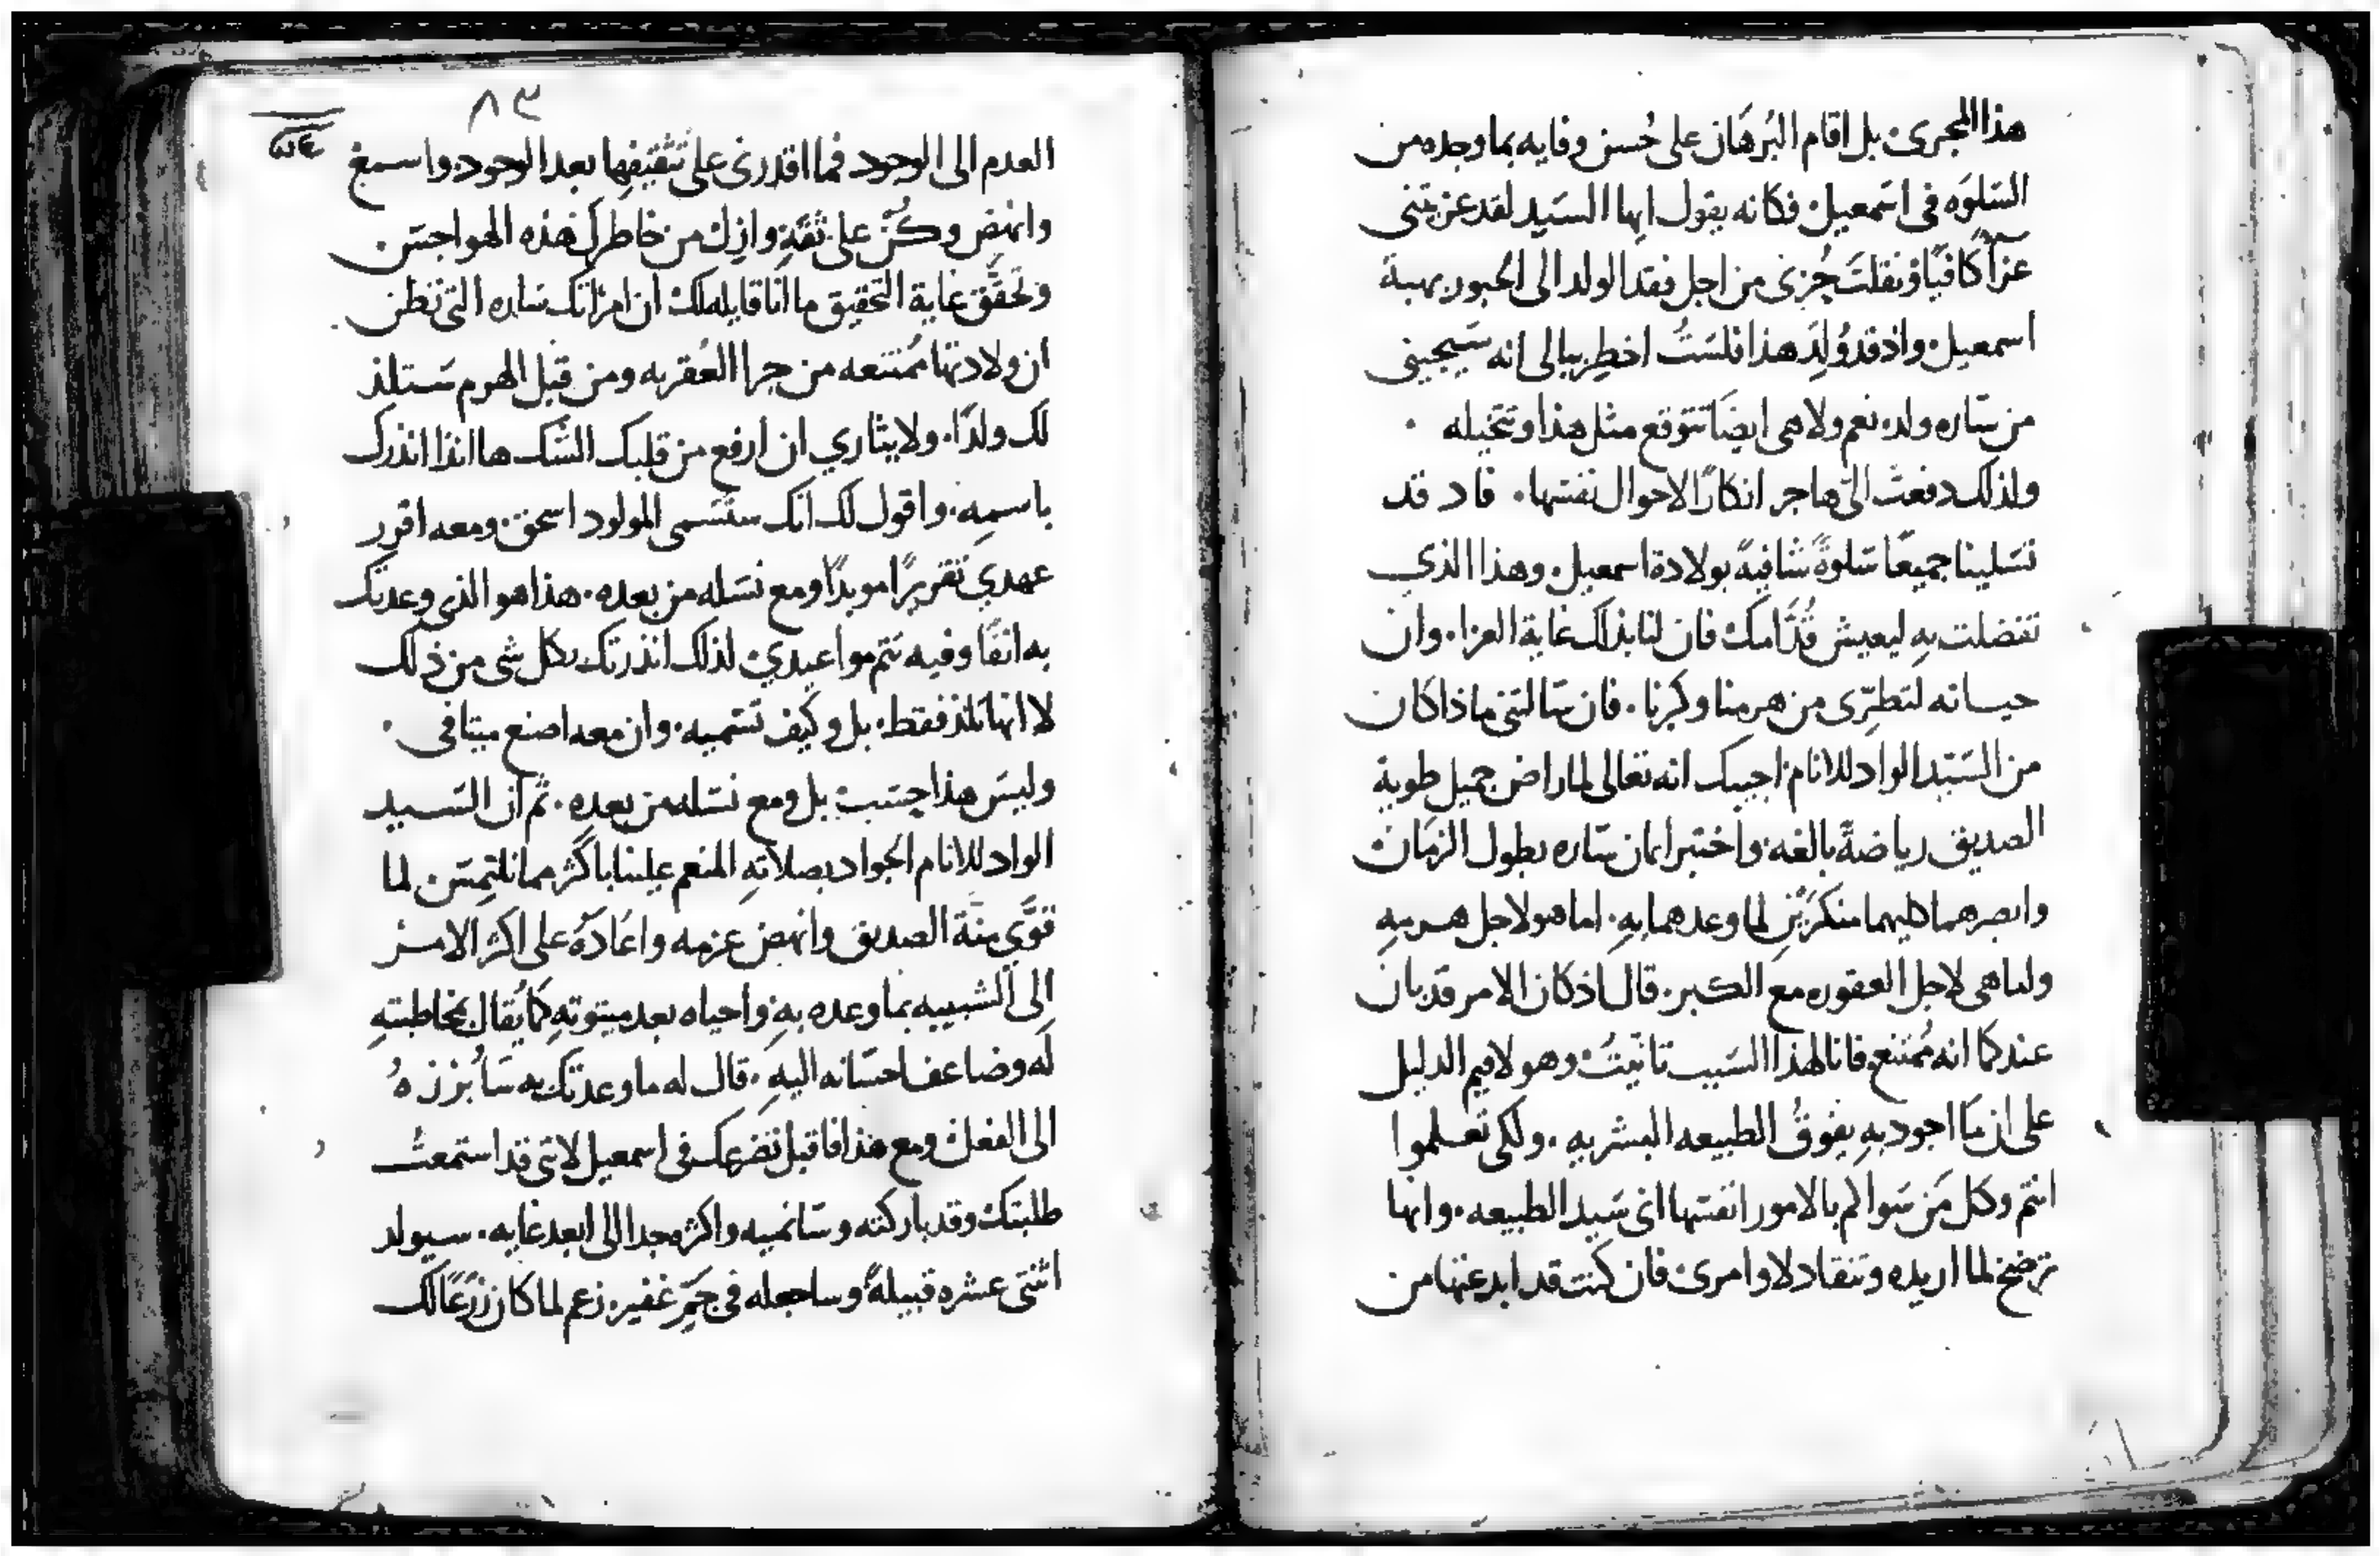 هذا المجرى بل اقام البُرهَان على حُسن وفايه بما وجده من
السَلوَه فى اسَمعيل فكانه يقول ايها السَيد لقد عزيتنى
عزاً كافيًا ونقلتَ حُزنى من اجل فقد الولد الى الحبور بهبة
اسمعيل واذ قد وُلِدَ هذا فلسَتُ اخطِر ببالى انه سَيجينى
من سَاره ولد نعم ولا هى ايضًا تتوقع مثل هذا وتتخيله
ولذلك دفعتْ الىَّ هاجر انكارًا لاحوال نفسَها فاد قد
تسَلينا جميعًا سَلوةً شافيةً بولادة اسمعيل وهذا الذي
تفضلت بهِ ليعيش قُدَّامك فان لنا بذلك غاية العزا وان
حياته لتطرّى من هرمنا وكبرنا فان سَالتنى ماذا كان
من السَيّد الواد للانام اجيبك انه تعالى لما راض جميل طوية
الصديق رياضةً بالغه واختبر ايمان سَاره بطول الزمَان
وابصرهما كليهما منكرَيْنِ لما وعدهما بهِ اما هو لاجل هرمهِ
واما هى لاجل العقوره مع الكبر قال اذ كان الامر قد بان
عندكما انه مُمتنع فانا لهذا السَبب تانيتُ وهو لاقيم الدليل
على ان مَا اجود بهِ يفوقُ الطبيعه البشريه ولكى تعلموا
انتم وكل مَن سَواكم بالامور انفسَها انى سَيد الطبيعه وانها
ترضخ لما اريده وتنقاد لاوامرى فان كنت قد ابدعتها من
٨٣
العدم الى الوجود فما اقدرنى على تثقيفها بعد الوجود واسمع
وانهض وكُنْ على ثقَةٍ وازِل من خاطرك هذه الهواجسَ
وتحقَّق غاية التحقيق ما انا قايله لك ان امراتك سَاره التى تظن
ان ولادتها مُمتنعه من جرا العُقريه ومن قِبَل الهرم سَتلد
لك ولدًا ولايثاري ان ارفع من قلبك الشَك ها انذا انذرك
باسمهِ واقول لك انك ستسَمى المولود اسحق ومعه اقرر
عهدي تقريرًا موبدًا ومع نسَله من بعده هذا هو الذى وعدتك
به انفًا وفيه تتم مواعيدي لذلك انذرتك بكل شى من ذلك
لا انها تلد فقط بل وكيف تسَميه وان معه اصنع ميثاقى
وليسَ هذا حسَب بل ومع نسَله من بعدهِ ثم ان السَيد
الواد للانام الجواد بصلاتهِ المنعم علينا باكثر مما نلتمسَ لما
قوَّى منَّة الصديق وانهض عزمه واعَادَهُ على اكثر الامر
الى الشبيبه بما وعده بهِ واحياه بعد ميتوتهِ كما يُقال بمخاطبتهِ
له وضاعف احسَانه اليهِ قال له ما وعدتك به سَاُبرزهُ
الى الفعل ومع هذا فاقبل تضرعك فى اسمعيل لانى قد استمعتُ
طلبتك وقد باركته وسَانميه واكثره جدا الى ابعد غايه سيولد
اثنتى عشره قبيلةً وساجعله فى جَمٍّ غفير زعم لما كان زرعًا لك